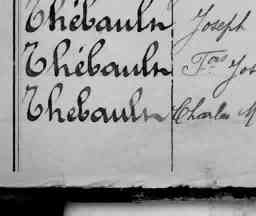 Thébault Joseph
Thébault Fois Jos
Thebault Charles M